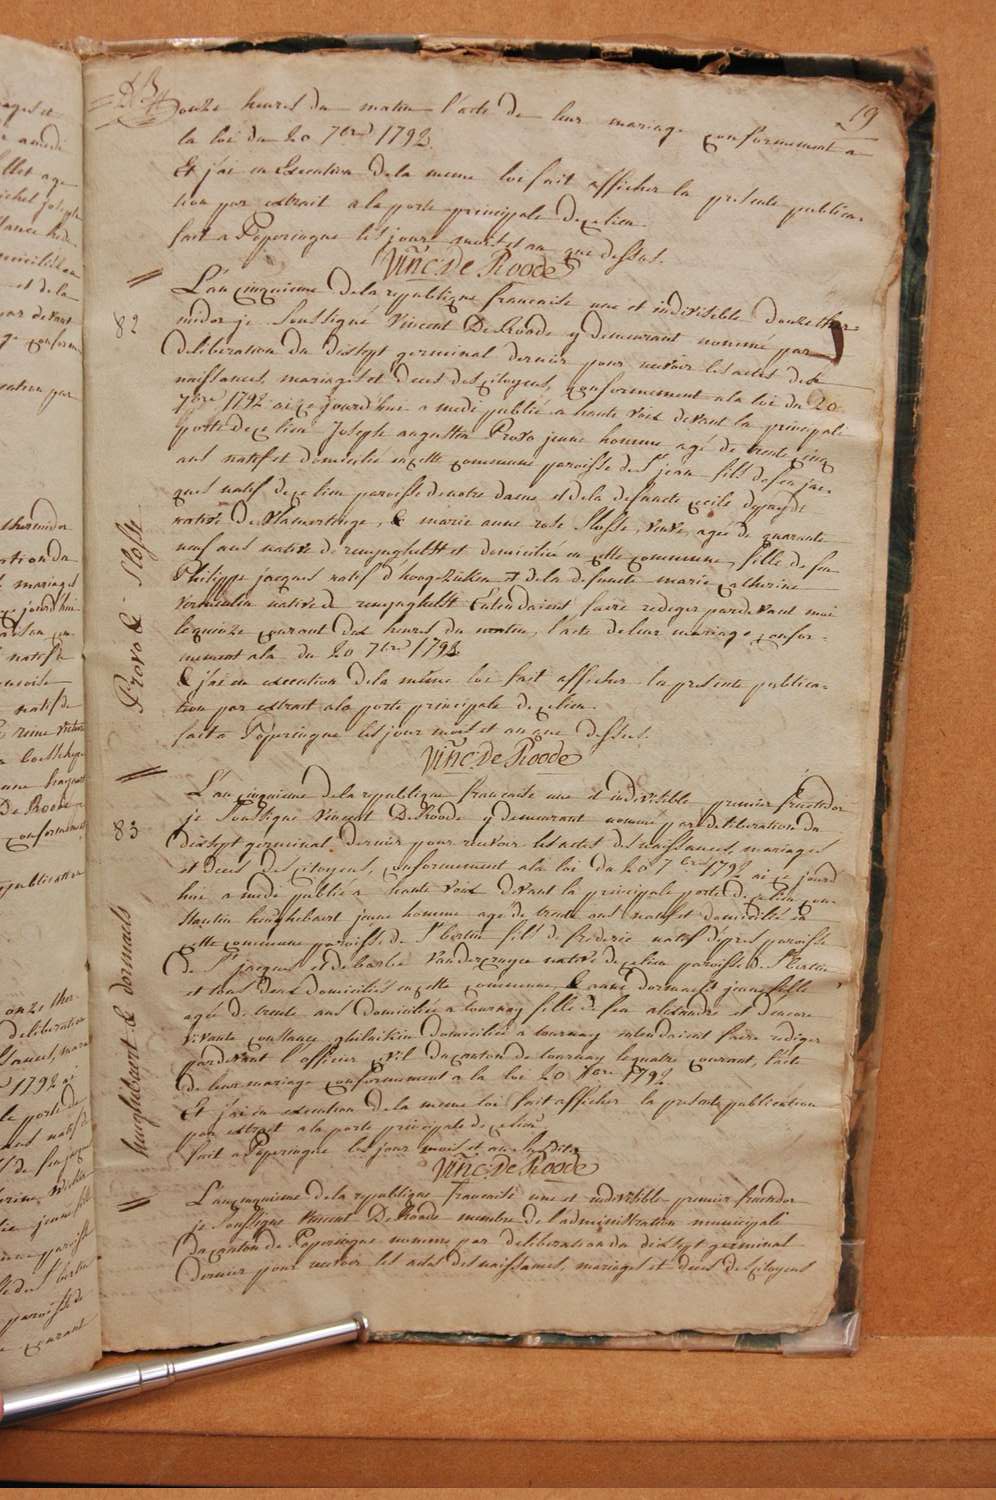 19
onze heures du matin l'acte de leur mariage conformement a
la loi du 20 7bre 1792.
Et j'ai en Execution de la meme loi fait afficher la presente publica-
tion par extrait a la porte principale de ce lieu.
fait a Poperingue les jour mois et an que dessus.
Vinc. De Roode
82
L'an cinquieme de la republique francaise une et indivisible douze ther-
midor je Soussigné Vincent De Roode y demeurant nommé par
deliberation du dixsept germinal dernier pour recevoir les actes de
naissances, mariages et deces des citoyens, conformement a la loi du 20
7bre 1792 ai ce jourd'hui a midi publié a haute voix devant la principale
porte de ce lieu Joseph augustin Provo jeune homme agé de trente cinq
ans natif et domicilié en cette commune paroisse de St jean fils de feu jac-
ques natif de ce lieu paroisse de notre dame et de la defuncte cecile
native de Vlamertinge, & marie anne rose Slosse, veuve, agée de quarante
neuf ans native de renynghelst et domiciliée en cette commune, fille de feu
Philippe jacques natif d'hoog et de la defuncte marie catherine
Vermeulen native de renynghelst Entendaient faire rediger pardevant moi
le quinze courant dix heures du matin, l'acte de leur mariage confor-
mement a la du 20 7bre 1792
& j'ai en execution de la même loi fait afficher la presente publica-
tion par extrait a la porte principale de ce lieu.
fait a Poperingue les jour mois et an que dessus.
Vinc. De Roode
Provo & Slosse
83
L'an cinquieme de la republique francaise une et indivisible premier fructidor
je Soussigné Vincent De Roode y demeurant nommé par deliberation du
dixsept germinal dernier pour recevoir les actes de naissances, mariages
et deces des citoyens, conformement a la loi du 20 7bre 1792 ai ce jourd
hui a midi publié a haute voix devant la principale porte de ce lieu con-
stantin jeune homme agé de trente ans natif et domicilié en
cette commune paroisse de St bertin fils de frederic natif d'ipres paroisse
de St jacques et de barbe Vandercruyce native de ce lieu paroisse de St bertin
et tous deux domiciliés en cette commune & anne dormaels jeune fille
agée de trente ans domiciliée a tournay fille de feu alexandre et d'encore
vivante constance domiciliée a tournay entendaient faire rediger
pardevant l'officier civil du canton de tournay le quatre courant, l'acte
de leur mariage conformement a la loi 20 7bre 1792
Et j'ai en execution de la meme loi fait afficher la presente publication
par extrait a la porte principale de ce lieu
fait a Poperingue les jour mois et an susdits
Vinc. De Roode
& dormaels
L'an cinquieme de la republique francaise une et indivisible premier fructidor
je Soussigné Vincent De Roode membre de l'administration municipale
du canton de Poperingue nommé par deliberation du dixsept germinal
dernier pour recevoir les actes de naissances, mariages et deces des citoyens